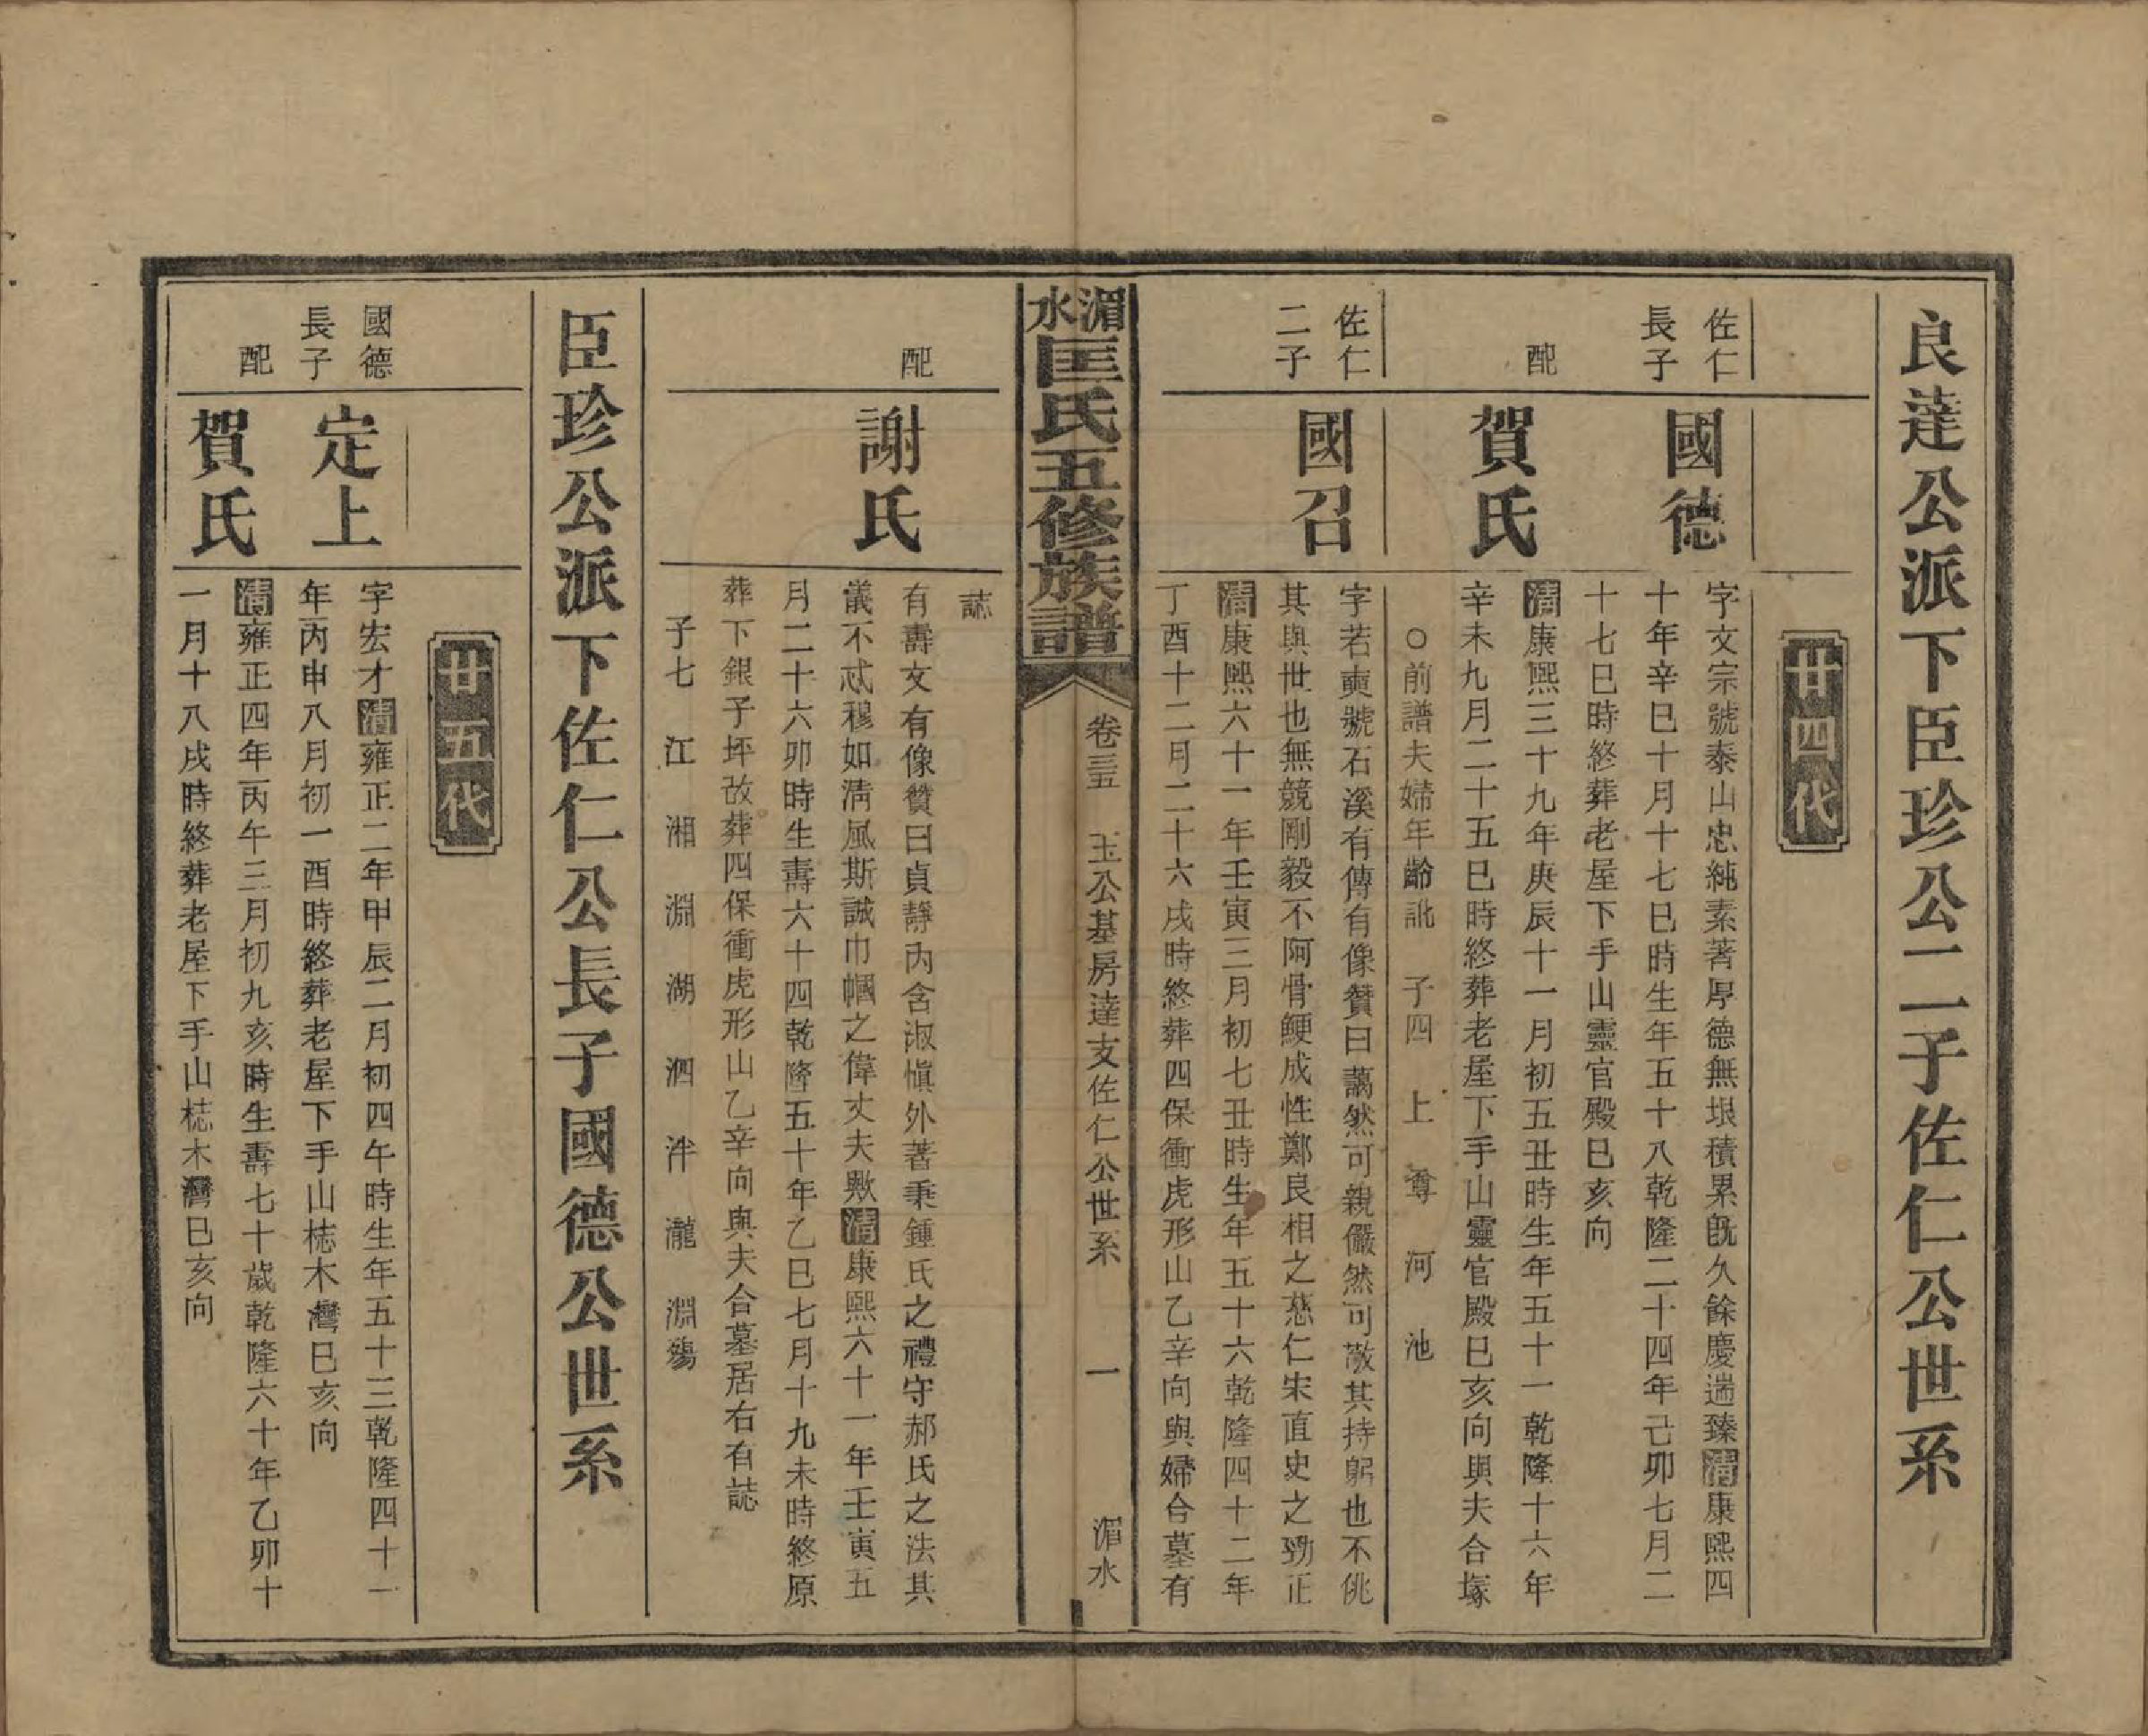 良達公派下臣珍公二子佐仁公世系
廿四代
佐仁
長子
國德
字文宗號泰山忠純素著厚德無垠積累既久餘慶遄臻清康熙四
十年辛巳十月十七巳時生年五十八乾隆二十四年己卯七月二
十七巳時終葬老屋下手山靈官殿巳亥向
配
賀氏
清康熙三十九年庚辰十一月初五丑時生年五十一乾隆十六年
辛未九月二十五巳時終葬老屋下手山靈官殿巳亥向與夫合塚
○前譜夫婦年齡訛 子四 上 尊 河 池
佐仁
二子
國召
字若奭號石溪有傳有像贊曰藹然可親儼然可敬其持躬也不佻
其與世也無競剛毅不阿骨鯁成性鄭良相之慈仁宋直史之勁正
清康熙六十一年壬寅三月初七丑時生年五十六乾隆四十二年
丁酉十二月二十六戌時終葬四保衝虎形山乙辛向與婦合墓有
湄水匡氏五修族譜
卷三五 玉公基房達支佐仁公世系 一 湄水
誌
配
謝氏
有壽文有像贊曰貞靜內含淑愼外著秉鍾氏之禮守郝氏之法其
儀不忒穆如淸風斯誠巾幗之偉丈夫歟清康熙六十一年壬寅五
月二十六卯時生壽六十四乾隆五十年乙巳七月十九未時終原
葬下銀子坪改葬四保衝虎形山乙辛向與夫合墓居右有誌
子七 江 湘 淵 湖 泗 泮 瀧 淵殤
臣珍公派下佐仁公長子國德公世系
廿五代
國德
長子
定上
字宏才清雍正二年甲辰二月初四午時生年五十三乾隆四十一
年丙申八月初一酉時終葬老屋下手山梽木灣巳亥向
配
賀氏
清雍正四年丙午三月初九亥時生壽七十歲乾隆六十年乙卯十
一月十八戌時終葬老屋下手山梽木灣巳亥向